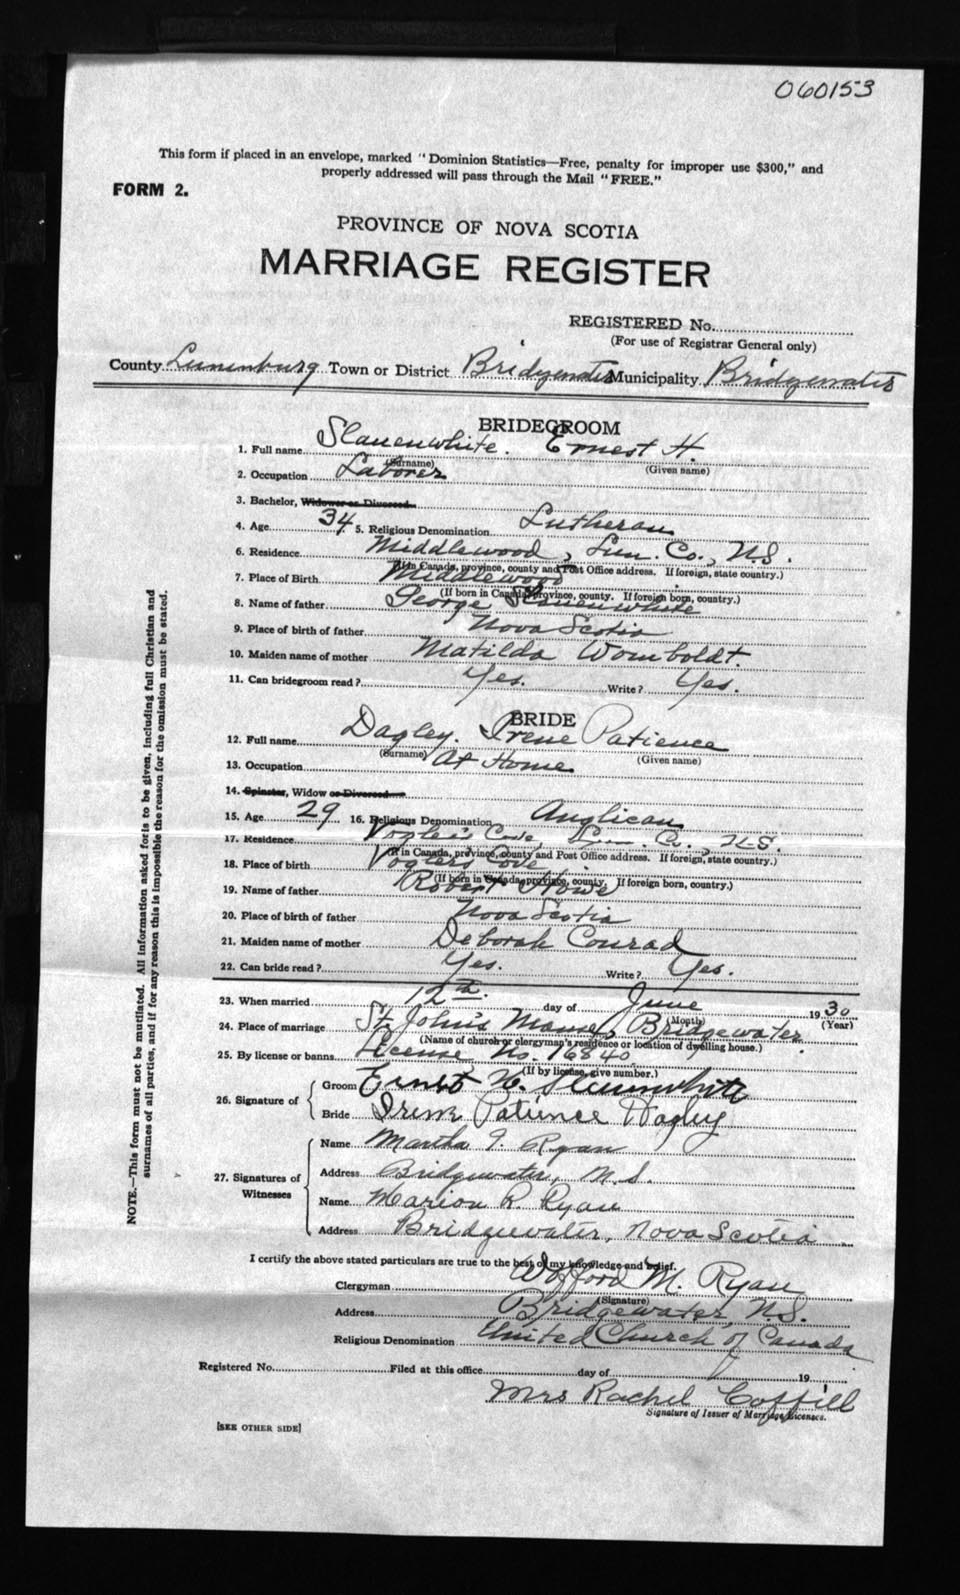 060153
This form if placed in an envelope, marked "Dominion Statistics—Free, penalty for improper use $300," and
properly addressed will pass through the Mail "FREE."
FORM 2.
PROVINCE OF NOVA SCOTIA
MARRIAGE REGISTER
REGISTERED No.
(For use of Registrar General only)
County Lunenburg Town or District Bridgewater Municipality Bridgewater
BRIDEGROOM
1. Full name Slauenwhite. Ernest H.
(Surname) (Given name)
2. Occupation Laborer
3. Bachelor, Widower or Divorced
4. Age 34 5. Religious Denomination Lutheran
6. Residence Middlewood, Lun. Co., N.S.
(If in Canada, province, county and Post Office address. If foreign, state country.)
7. Place of Birth Middlewood
(If born in Canada, province, county. If foreign born, country.)
8. Name of father George Slauenwhite
9. Place of birth of father Nova Scotia
10. Maiden name of mother Matilda Womboldt.
11. Can bridegroom read? Yes. Write? Yes.
BRIDE
12. Full name Dagley. Irene Patience
(Surname) (Given name)
13. Occupation At Home
14. Spinster, Widow or Divorced
15. Age 29 16. Religious Denomination Anglican
17. Residence Vogler's Cove, Lun. Co., N.S.
(If in Canada, province, county and Post Office address. If foreign, state country.)
18. Place of birth Voglers Cove
(If born in Canada, province, county. If foreign born, country.)
19. Name of father Robert Howe
20. Place of birth of father Nova Scotia
21. Maiden name of mother Deborah Conrad
22. Can bride read? Yes. Write? Yes.
23. When married 12th. day of June 1930
(Month) (Year)
24. Place of marriage St. John's Manse, Bridgewater
(Name of church or clergyman's residence or location of dwelling house.)
25. By license or banns License No. 16840
(If by license, give number.)
26. Signature of
Groom Ernest H. Slauenwhite
Bride Irene Patience Dagley
27. Signatures of Witnesses
Name Martha I. Ryan
Address Bridgewater, N.S.
Name Marion R. Ryan
Address Bridgewater, Nova Scotia
I certify the above stated particulars are true to the best of my knowledge and belief.
Clergyman M. Ryan
(Signature)
Address Bridgewater, N.S.
Religious Denomination United Church of Canada
Registered No. Filed at this office day of 19
Mrs Rachel Coffill
Signature of Issuer of Marriage Licenses.
[SEE OTHER SIDE]
NOTE.—This form must not be mutilated. All information asked for is to be given, including full Christian and
surnames of all parties, and if for any reason this is impossible the reason for the omission must be stated.